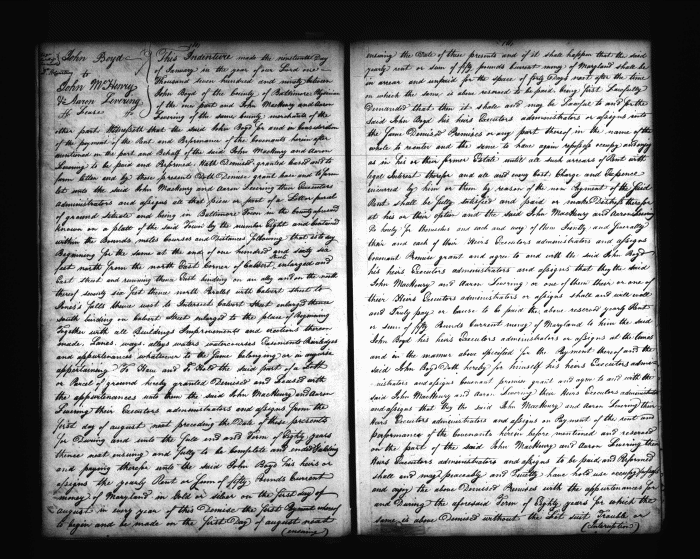 John Boyd
to
John McHenry
& Aaron Levering
Lease
This Indenture made the nineteenth day
of January in the year of our Lord one
Thousand seven hundred and ninety between
John Boyd of the County of Baltimore Physician
of the one part and John MacHenry and Aaron
Levering of the same County merchants of the
other part. Witnesseth that the said John Boyd for and in consideration
of the payment of the Rent and Performance of the Covenants herein after
mentioned on the part and Behalf of the said John MacHenry and Aaron
Levering to be paid and Performed Hath Demised granted leased and to
farm letten and by these presents Doth Demise grant lease and to farm
let unto the said John MacHenry and Aaron Levering their Executors
administrators and assigns all that Piece or part of a Lott or parcel
of ground situate and being in Baltimore Town in the County aforesaid
known on a platt of the said Town by the number Eight and Contained
within the Bounds metes Courses and Distances following that is to say
Beginning for the same at the end of one hundred and sixty six
feet north from the north East Corner of Calvert Street enlarged and
East street and running thence East binding on alley and on the north
thereof seventy six feet thence north Parallel with Calvert street to
Jones's falls thence west to Intersect Calvert Street enlarged thence
south binding on Calvert Street enlarged to the place of Beginning
Together with all Buildings Improvements and erections thereon
made, Lanes ways alleys waters watercourses Easements Priviledges
and appurtenances whatsoever to the same belonging or in anywise
appertaining To Have and To Hold the said part of a Lott
or Parcel of ground hereby granted Demised and Leased with
the appurtenances unto them the said John MacHenry and Aaron
Levering their Executors administrators and assigns from the
first day of august next preceding the Date of these presents
for During and until the full end and Term of Eighty years
thence next ensuing and fully to be complete and ended Yielding
and paying therefor unto the said John Boyd his heirs or
assigns the yearly Rent or sum of fifty Pounds Current
money of Maryland in Gold or silver on the first day of
august in every year of this Demise the first Payment whereof
to begin and be made on the first Day of august next
(ensuing)
ensuing the Date of these presents and if it shall happen that the said
yearly rent or sum of fifty pounds Current money of Maryland shall be
in arrear and unpaid for the space of forty Days next after the time
on which the same is above reserved to be paid being first Lawfully
Demanded that then it shall and may be Lawful to and for the
said John Boyd his heirs Executors administrators or assigns into
the same Demised Premises or any part thereof in the name of the
whole to reenter and the same to have again repossess occupy and enjoy
as in his or their former Estate until all such arrears of Rent with
legal Interest therefor and all and every Cost Charge and Expense
incurred by him or them by reason of the non Payment of the said
Rent shall be fully satisfied and paid or make Distress therefor
at his or their option and the said John MacHenry and Aaron Levering
Do hereby for themselves and each and every of them Jointly and severally
their and each of their Heirs Executors administrators and assigns
Covenant Promise grant and agree to and with the said John Boyd
his heirs Executors administrators and assigns that they the said
John MacHenry and Aaron Levering or one of them their or one of
their Heirs Executors administrators or assigns shall and will well
and Truly pay or cause to be paid the above reserved yearly Rent
or sum of fifty Pounds Current money of Maryland to him the said
John Boyd his heirs Executors administrators or assigns at the times
and in the manner above specified for the Payment thereof and the
said John Boyd Doth hereby for himself his heirs Executors admin
istrators and assigns Covenant promise grant and agree to and with the
said John MacHenry and Aaron Levering their Heirs Executors administrators
and assigns that they the said John MacHenry and Aaron Levering their
Heirs Executors administrators and assigns on Payment of the rent and
performance of the Covenants herein before mentioned and reserved
on the part of the said John MacHenry and Aaron Levering their
Heirs Executors administrators and assigns to be paid and Performed
shall and may peaceably and Quietly have hold use occupy possess
and enjoy the above Demised Premises with the appurtenances for
and During the aforesaid Term of Eighty years for which the
same is above Demised without the Let suit Trouble or
(Interruption)